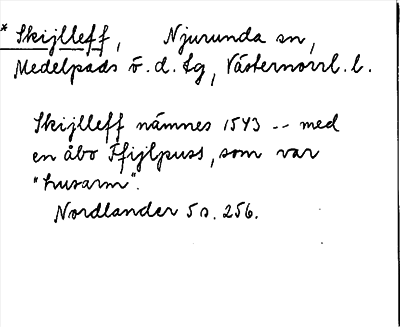 * Skijlleff, Njurunda sn,
Medelpads v. d. tg, Västernorrl. l.
Skijlleff nämnes 1543 -- med
en åbo Ffijlpuss, som var
"husarm".
Nordlander 5 s. 256.